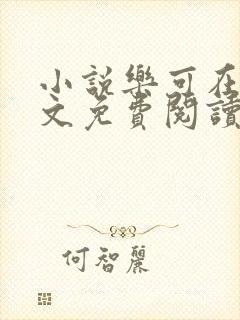 小說樂可在
文免費閱讀
何智麗